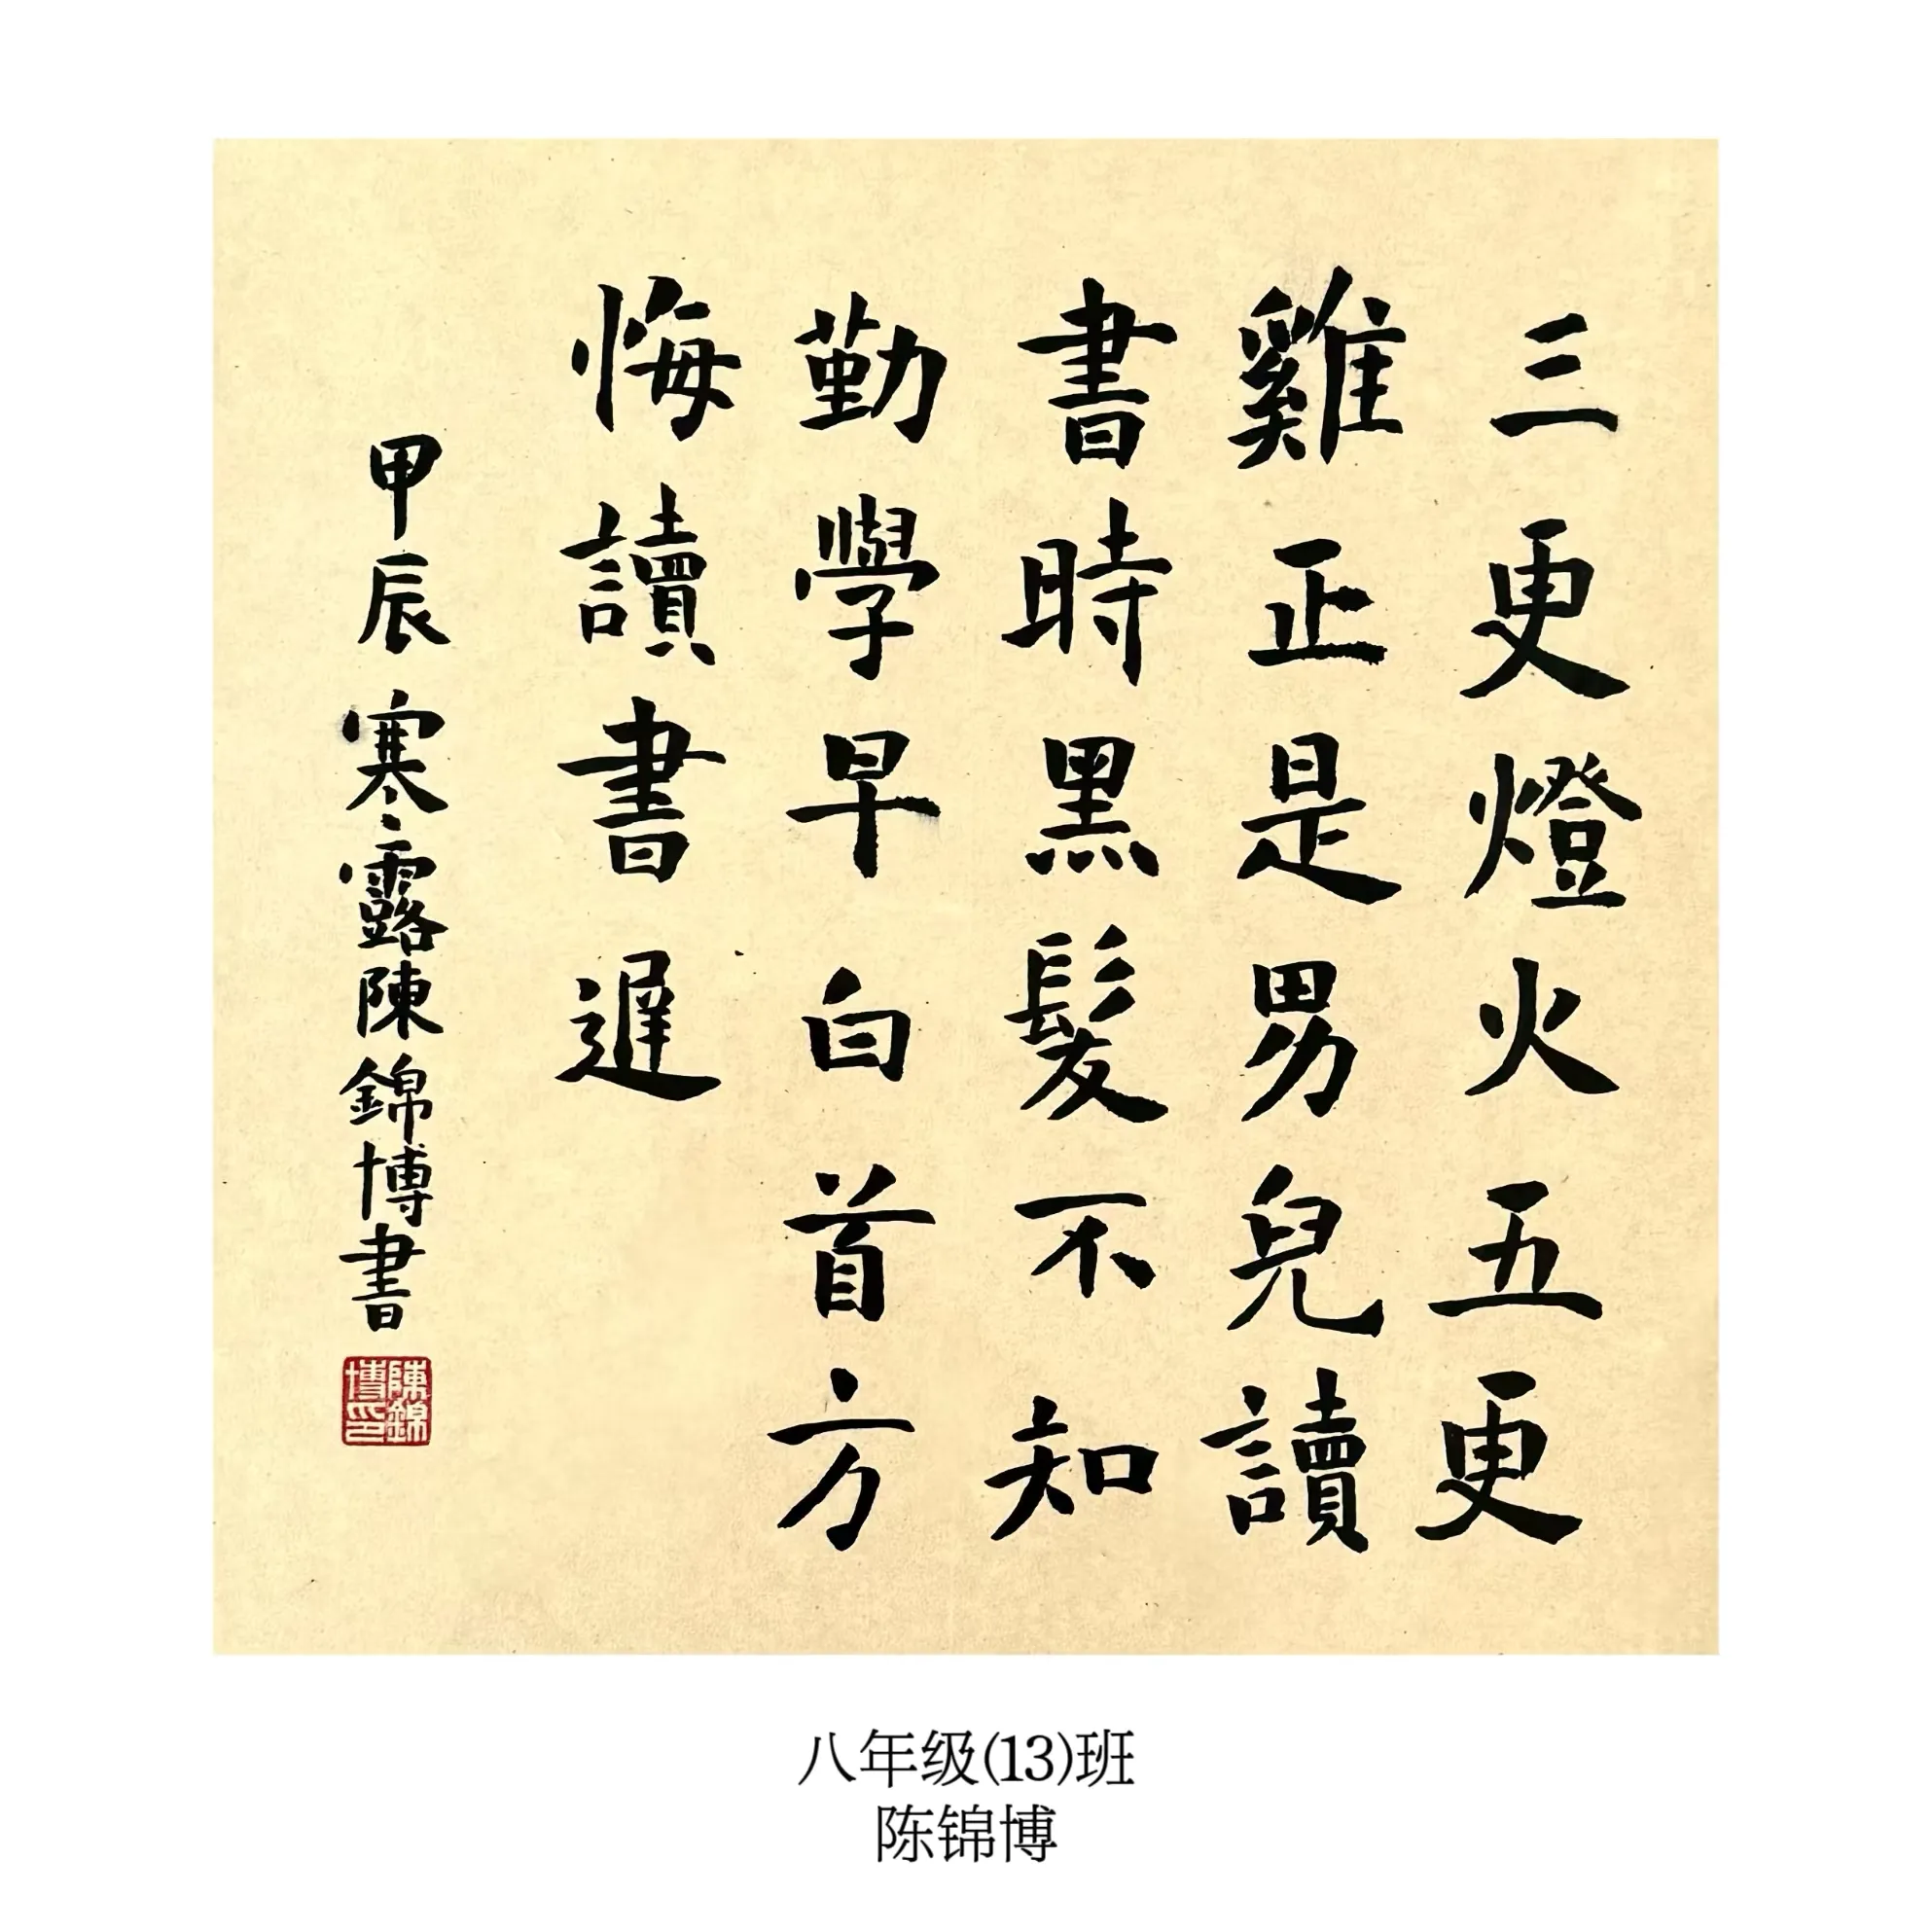 三更燈火五更
雞正是男兒讀
書時黑髮不知
勤學早白首方
悔讀書遲
甲辰寒露陳錦博書
陳錦博印
八年级(13)班
陈锦博